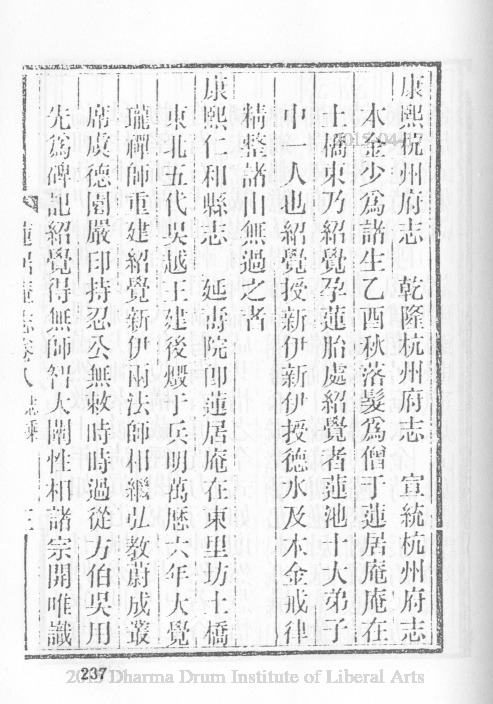 康熙杭州府志　乾隆杭州府志　宣統杭州府志
本金少為諸生乙酉秋落髮為僧于蓮居庵庵在
土橋東乃紹覺孕蓮胎處紹覺者蓮池十大弟子
中一人也紹覺授新伊新伊授德水及本金戒律
精整諸山無過之者
康熙仁和縣志　延壽院卽蓮居庵在東里坊土橋
東北五代吳越王建後燬于兵明萬曆六年大覺
瓏禪師重建紹覺新伊兩法師相繼弘教蔚成叢
席虞德園嚴印持忍公無敕時時過從方伯吳用
先為碑記紹覺得無師智大闡性相諸宗開唯識
蓮居庵志卷八　志乘
237
Dharma Drum Institute of Liberal Arts